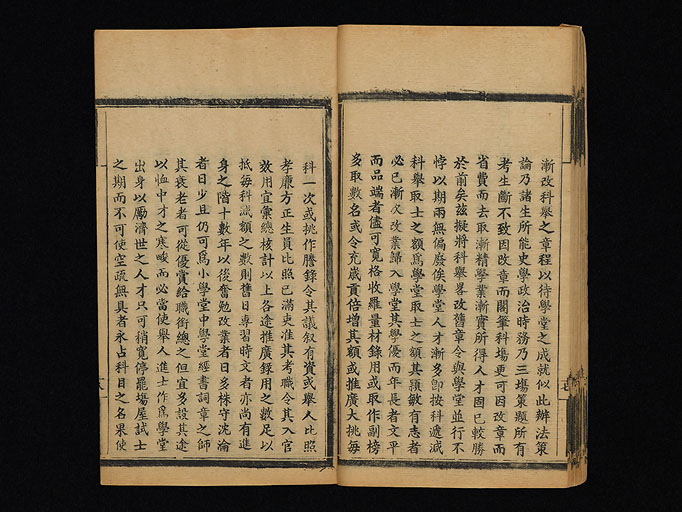 漸改科舉之章程以待學堂之成就似此辦法策
論乃諸生所能史學政治時務乃三場策題所有
考生斷不致因改章而閣筆科場更可因改章而
省費而去取漸精學業漸實所得人才固已較勝
於前矣茲擬將科舉畧改舊章令與學堂並行不
悖以期兩無偏廢俟學堂人才漸多即按科遞減
科舉取士之額爲學堂取士之額其頴敏有志者
必已漸次改業歸入學堂其學優而年長者文平
而品端者儘可寬格收羅量材錄用或取作副榜
多取數名或令充歲貢倍增其額或推廣大挑每
科一次或挑作謄錄令其議叙有資或舉人比照
孝廉方正生員比照已滿吏准其考職令其入官
效用宜彙總核計以上各途推廣錄用之數足以
抵每科減額之數則舊日專習時文者亦尚有進
身之階十數年以後奮勉改業者日多株守沈淪
者日少且仍可爲小學堂中學堂經書詞章之師
其衰老者可從優賞給職銜總之但宜多設其途
以恤中才之寒畯而必當使舉人進士作爲學堂
出身以勵濟世之人才只可稍寬停罷場屋試士
之期而不可使空疏無具者永占科目之名果使